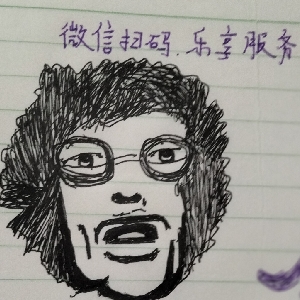 微信扫码 乐享服务